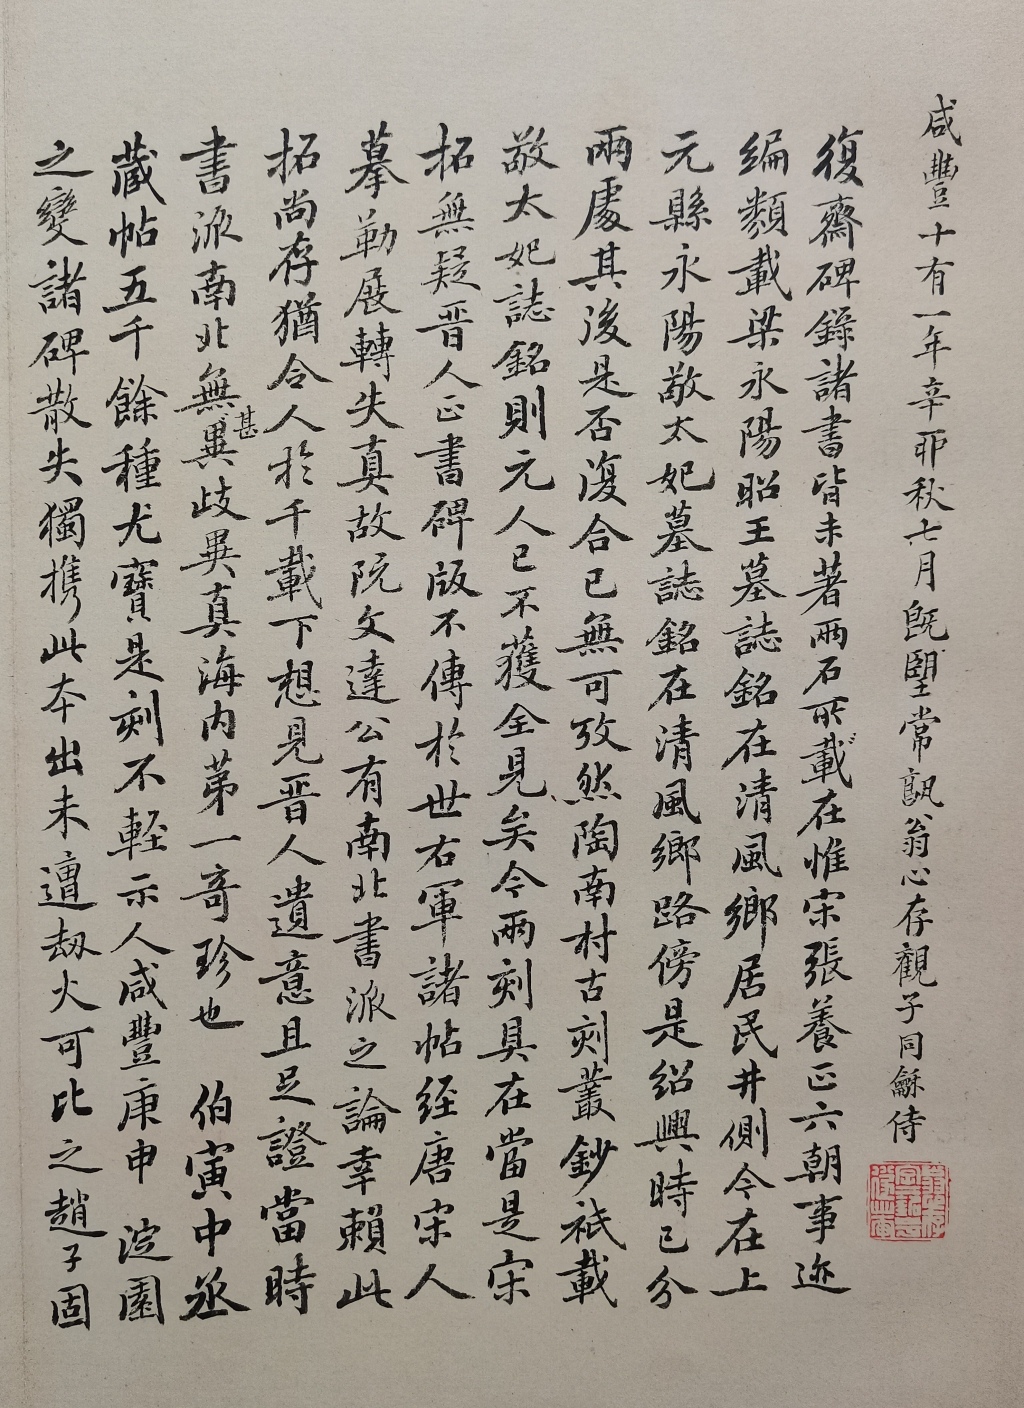 咸豐十有一年辛丣秋七月既朢常郰翁心存觀子同龢侍
復齋碑錄諸書皆未著兩石所載在惟宋張養正六朝事迹
編類載梁永陽昭王墓誌銘在清風鄉居民井側今在上
元縣永陽敬太妃墓誌銘在清風鄉路傍是紹興時已分
兩處其後是否復合已無可攷然陶南村古刻叢鈔祇載
敬太妃誌銘則元人已不獲全見矣今兩刻具在當是宋
拓無疑晉人正書碑版不傳於世右軍諸帖經唐宋人
摹勒展轉失真故阮文達公有南北書派之論幸賴此
拓尚存猶令人於千載下想見晉人遺意且足證當時
書派南北無異甚歧異真海内第一奇珍也 伯寅中丞
藏帖五千餘種尤寶是刻不輕示人咸豐庚申 淀園
之變諸碑散失獨携此本出未遭刼火可比之趙子固